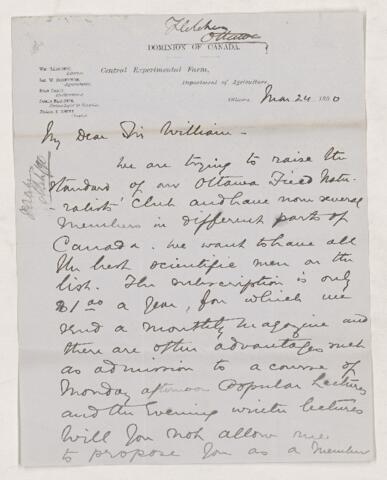 Fletcher
Ottawa
DOMINION OF CANADA.
Central Experimental Farm,
Department of Agriculture,
Ottawa, Mar 24 1890
My Dear Sir William -
We are trying to raise the
standard of our Ottawa Field Natu-
ralists' Club and have now several
members in different parts of
Canada. We want to have all
the best scientific men on the
list. The subscription is only
$1.00 a year, for which we
send a monthly magazine and
there are other advantages such
as admission to a course of
Monday afternoon Popular Lectures
and the Evening winter lectures
Will you not allow me
to propose you as a member